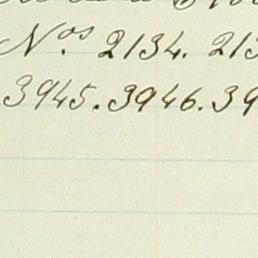 Nos. 2134. 213
3945. 3946. 39